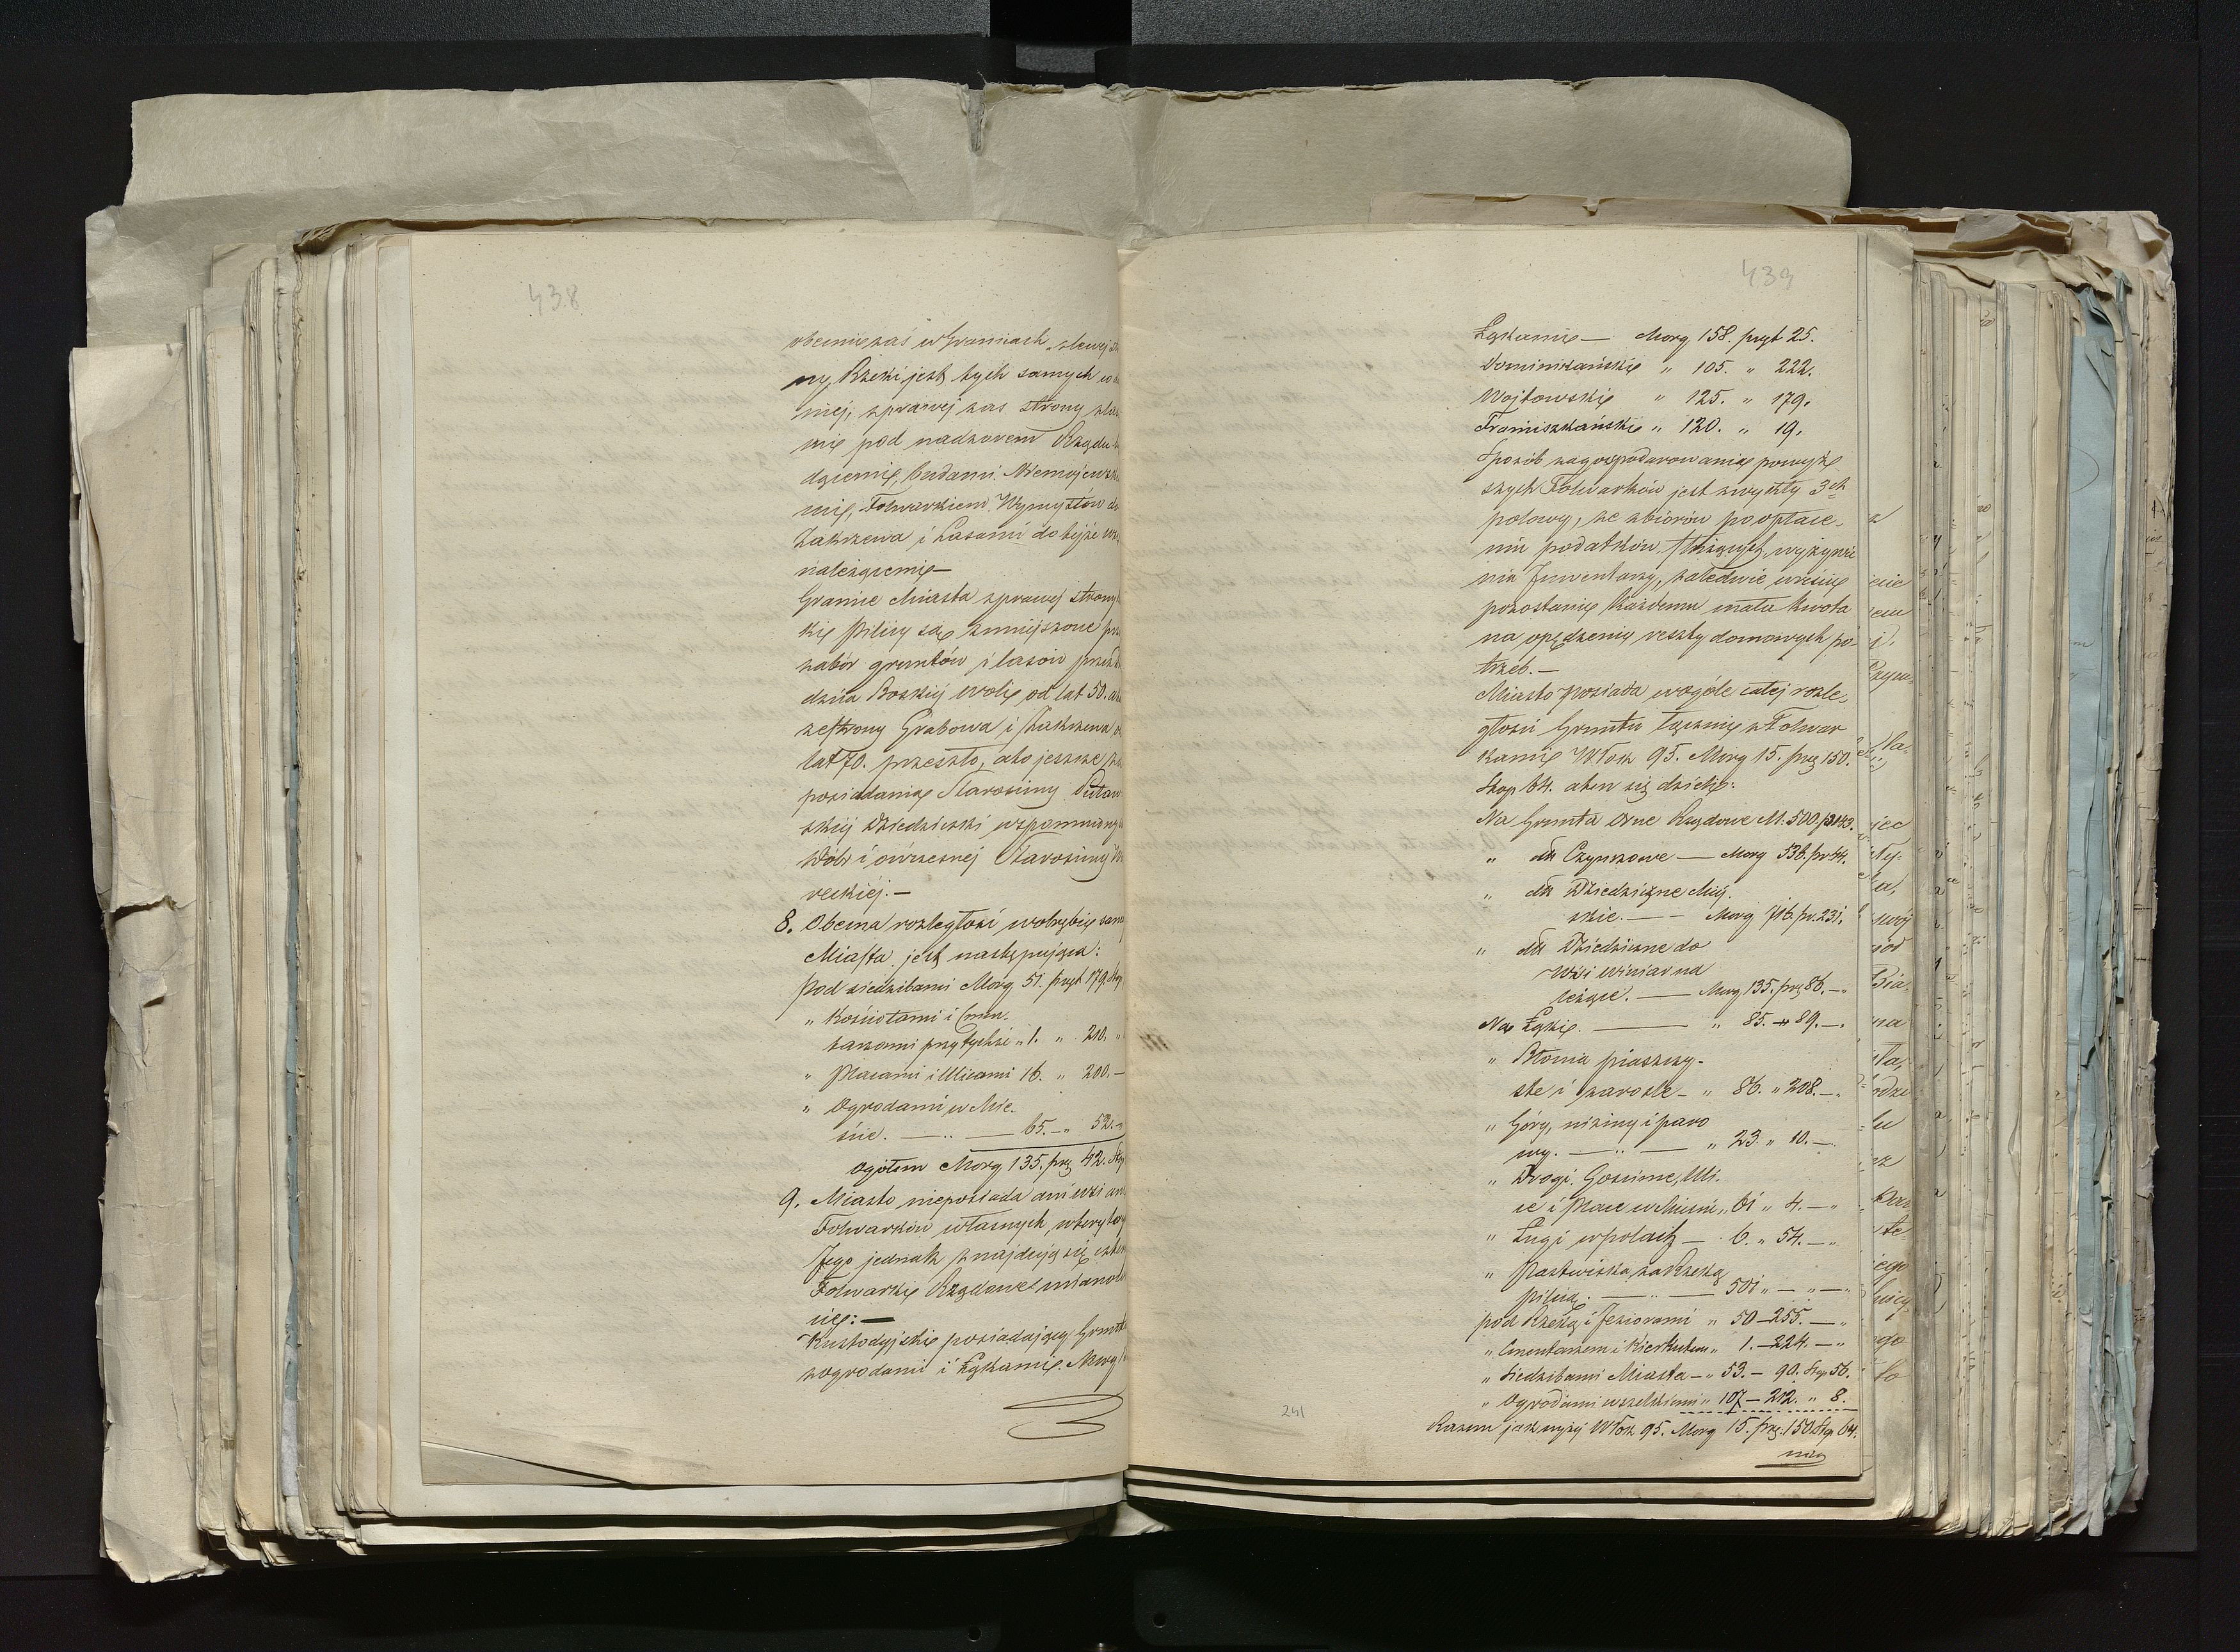 438
obecnie zaś w Granicach z lewej
ny Rzeki jest tych samych
niej, z prawej zas strony
nie pod nadzorem Rządu
dącemi, budami Niemojewsk
mi, Folwarkiem Wymysłów
Zakrzewa i Lasami do tejże
należącemi—
Granice Miasta z prawej strony
ki Pilicy są zmniejszone
zabór gruntów i lasów przez
dzica Boskiej woli od lat 50.
ze strony Grabowa i Zakrzewa
lat 70. przeszło, ato jeszcze
posiadania Starościny
skiej Dziedziczki wspomnianych
Dóbr i ówczesnej Starościny
reckiej.—
8. Obecna rozległość w obrębie samego
Miasta jest następująca:
Pod siedzibami Morg 51. pręt 179.
" Kościołami i Cmen-
tarzami przy tychże " 1. " 210. "
" Placami i Ulicami 16. " 200.—
" Ogrodami w Mie-
ście. —..— 65.—" 52.—
Ogółem Morg 135. prę 42.
9. Miasto nieposiada ani wsi ani
Folwarków własnych, w terytory
Jego jednak znajdują się cztery
Folwarki Rządowe mianowi
cie:—
Kustodyjski posiadający Grunta
z ogrodami i Łąkami. Morg
439
Łąkami— Morg 158. pręt 25.
Dominikański " 105. " 222.
Wojtowski " 125. " 179.
Franciszkański " 120. " 19.
Sposób zagospodarowania powyż-
szych Folwarków jest zwykły 3ch
polowy, ze zbiorów po opłace-
niu podatków, służących, wyżywie
nia Inwentarzy, zaledwie
pozostanie każdemu mała kwota
na opędzenie reszty domowych po-
trzeb.—
Miasto posiada wogóle całej rozle-
głości Gruntu łącznie z Folwar
kami Włók 95. Morg 15. prę 150.
Stop 64. aten się dzieli:
Na Grunta orne Rządowe M. 500. p 143.
" dtt Czynszowe — Morg 536. pr 44.
" dtt Dziedziczne Miej-
skie. — — Morg 716. pr. 231.
" dtt Dziedziczne do
Wsi Winiar na
leżące. — Morg 135. prę 86.—"
Na Łąki. — " 85.—" 89.—"
" Błonia piaszczy-
ste i zarosłe— " 86. " 208.—"
" Góry, niziny i paro
wy. —..— " 23. " 10.—
" Drogi, Goscince, Uli-
ce i Place w Mieście " 61 " 4.—"
" Ługi w polach — 6. " 54.—"
" Pastwiska za Rzeką
Pilicą. —..— 501 " — " —"
pod Rzeką i Jeziorami " 50—255.—"
" Cmentarzem i Kierkutem " 1.—224.—"
" Siedzibami Miasta—" 53.— 90. Stop 56.
" Ogrodami wszelkiemi " 107—212. " 8.
Razem jak wyżej Włók 95. Morg 15. prę. 150 Stop 64.
241